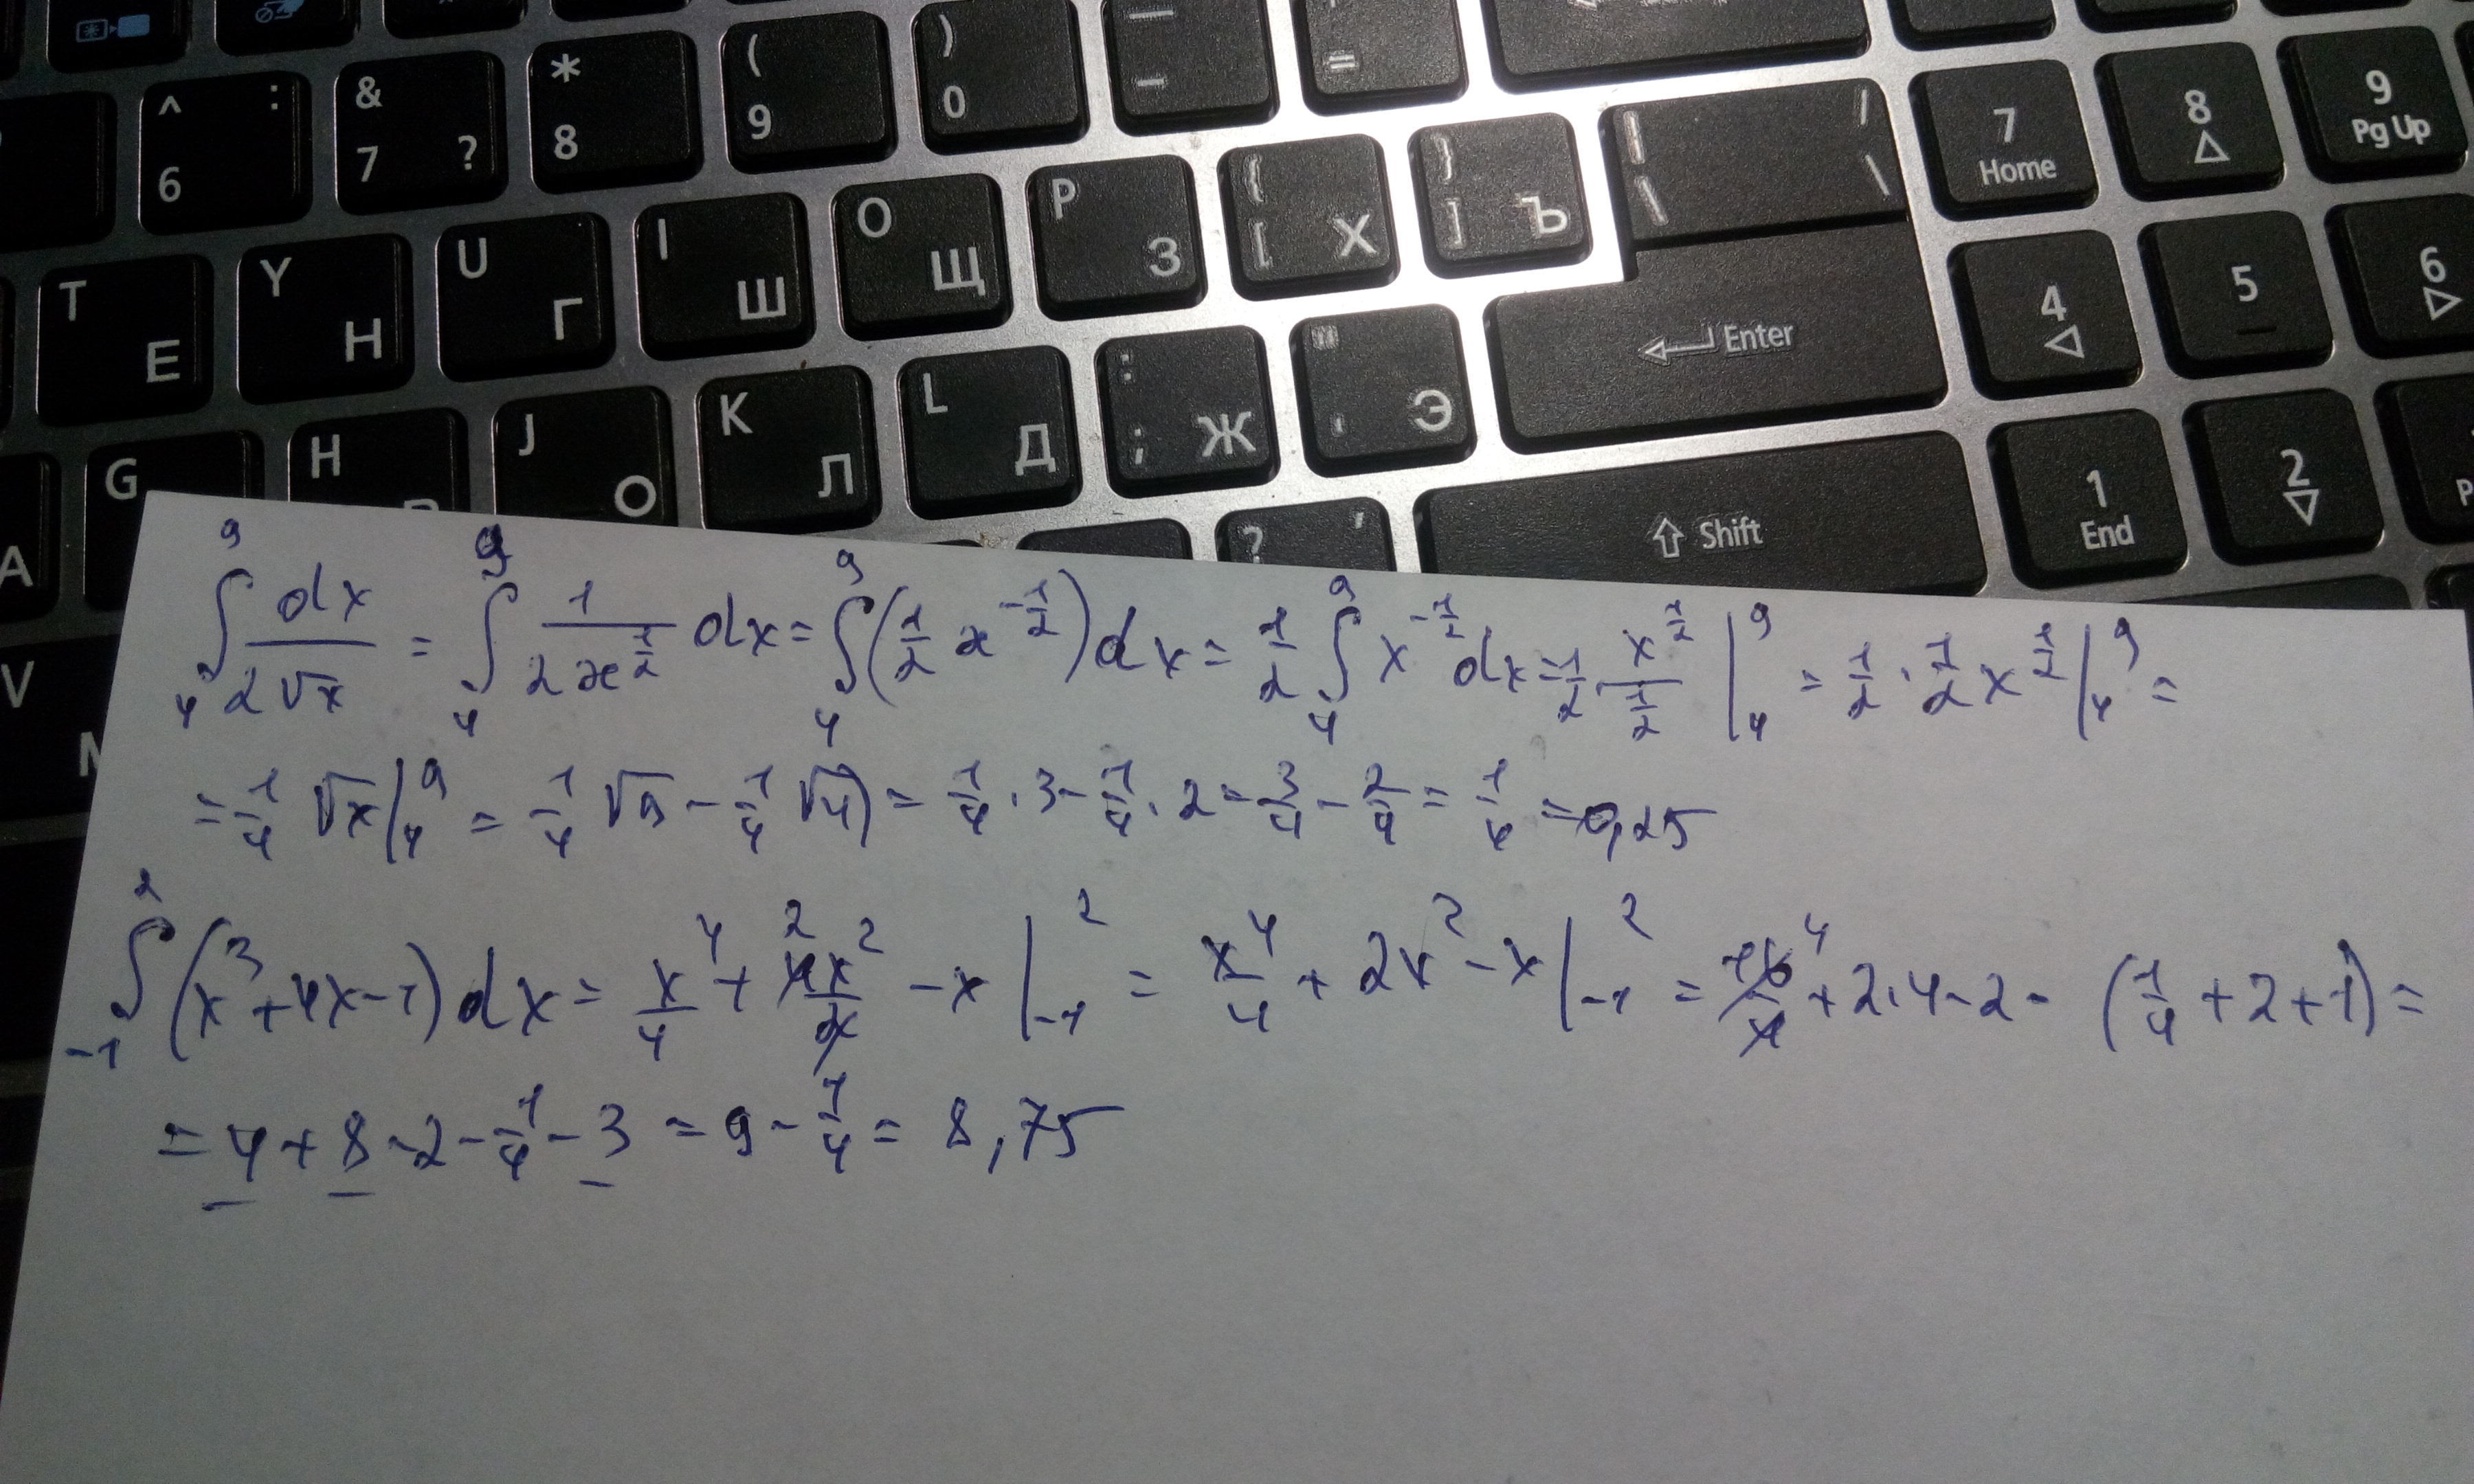 ^ : 6 & 7 ? * 8 ( 9 ) 0 — - =
7 Home 8 9 Pg Up
T Е Y Н U Г I Ш O Щ P З { [ Х } ] Ъ | \ / \
4 5 6
G H J О K Л L Д : ; Ж " ' Э Enter
1 End 2
A ? , Shift
V
∫₄⁹ dx/(2√x) = ∫₄⁹ 1/(2x^(1/2)) dx = ∫₄⁹ (1/2 x^(-1/2)) dx = 1/2 ∫₄⁹ x^(-1/2) dx = 1/2 · x^(1/2)/(1/2) |₄⁹ = 1/2 · 1/2 x^(1/2) |₄⁹ =
= 1/4 √x |₄⁹ = 1/4 √9 - 1/4 √4) = 1/4 · 3 - 1/4 · 2 = 3/4 - 2/4 = 1/4 = 0,25
∫₋₁² (x³ + 4x - 1) dx = x⁴/4 + 4x²/2 - x |₋₁² = x⁴/4 + 2x² - x |₋₁² = 16/4 + 2·4 - 2 - (1/4 + 2 + 1) =
= 4 + 8 - 2 - 1/4 - 3 = 9 - 1/4 = 8,75